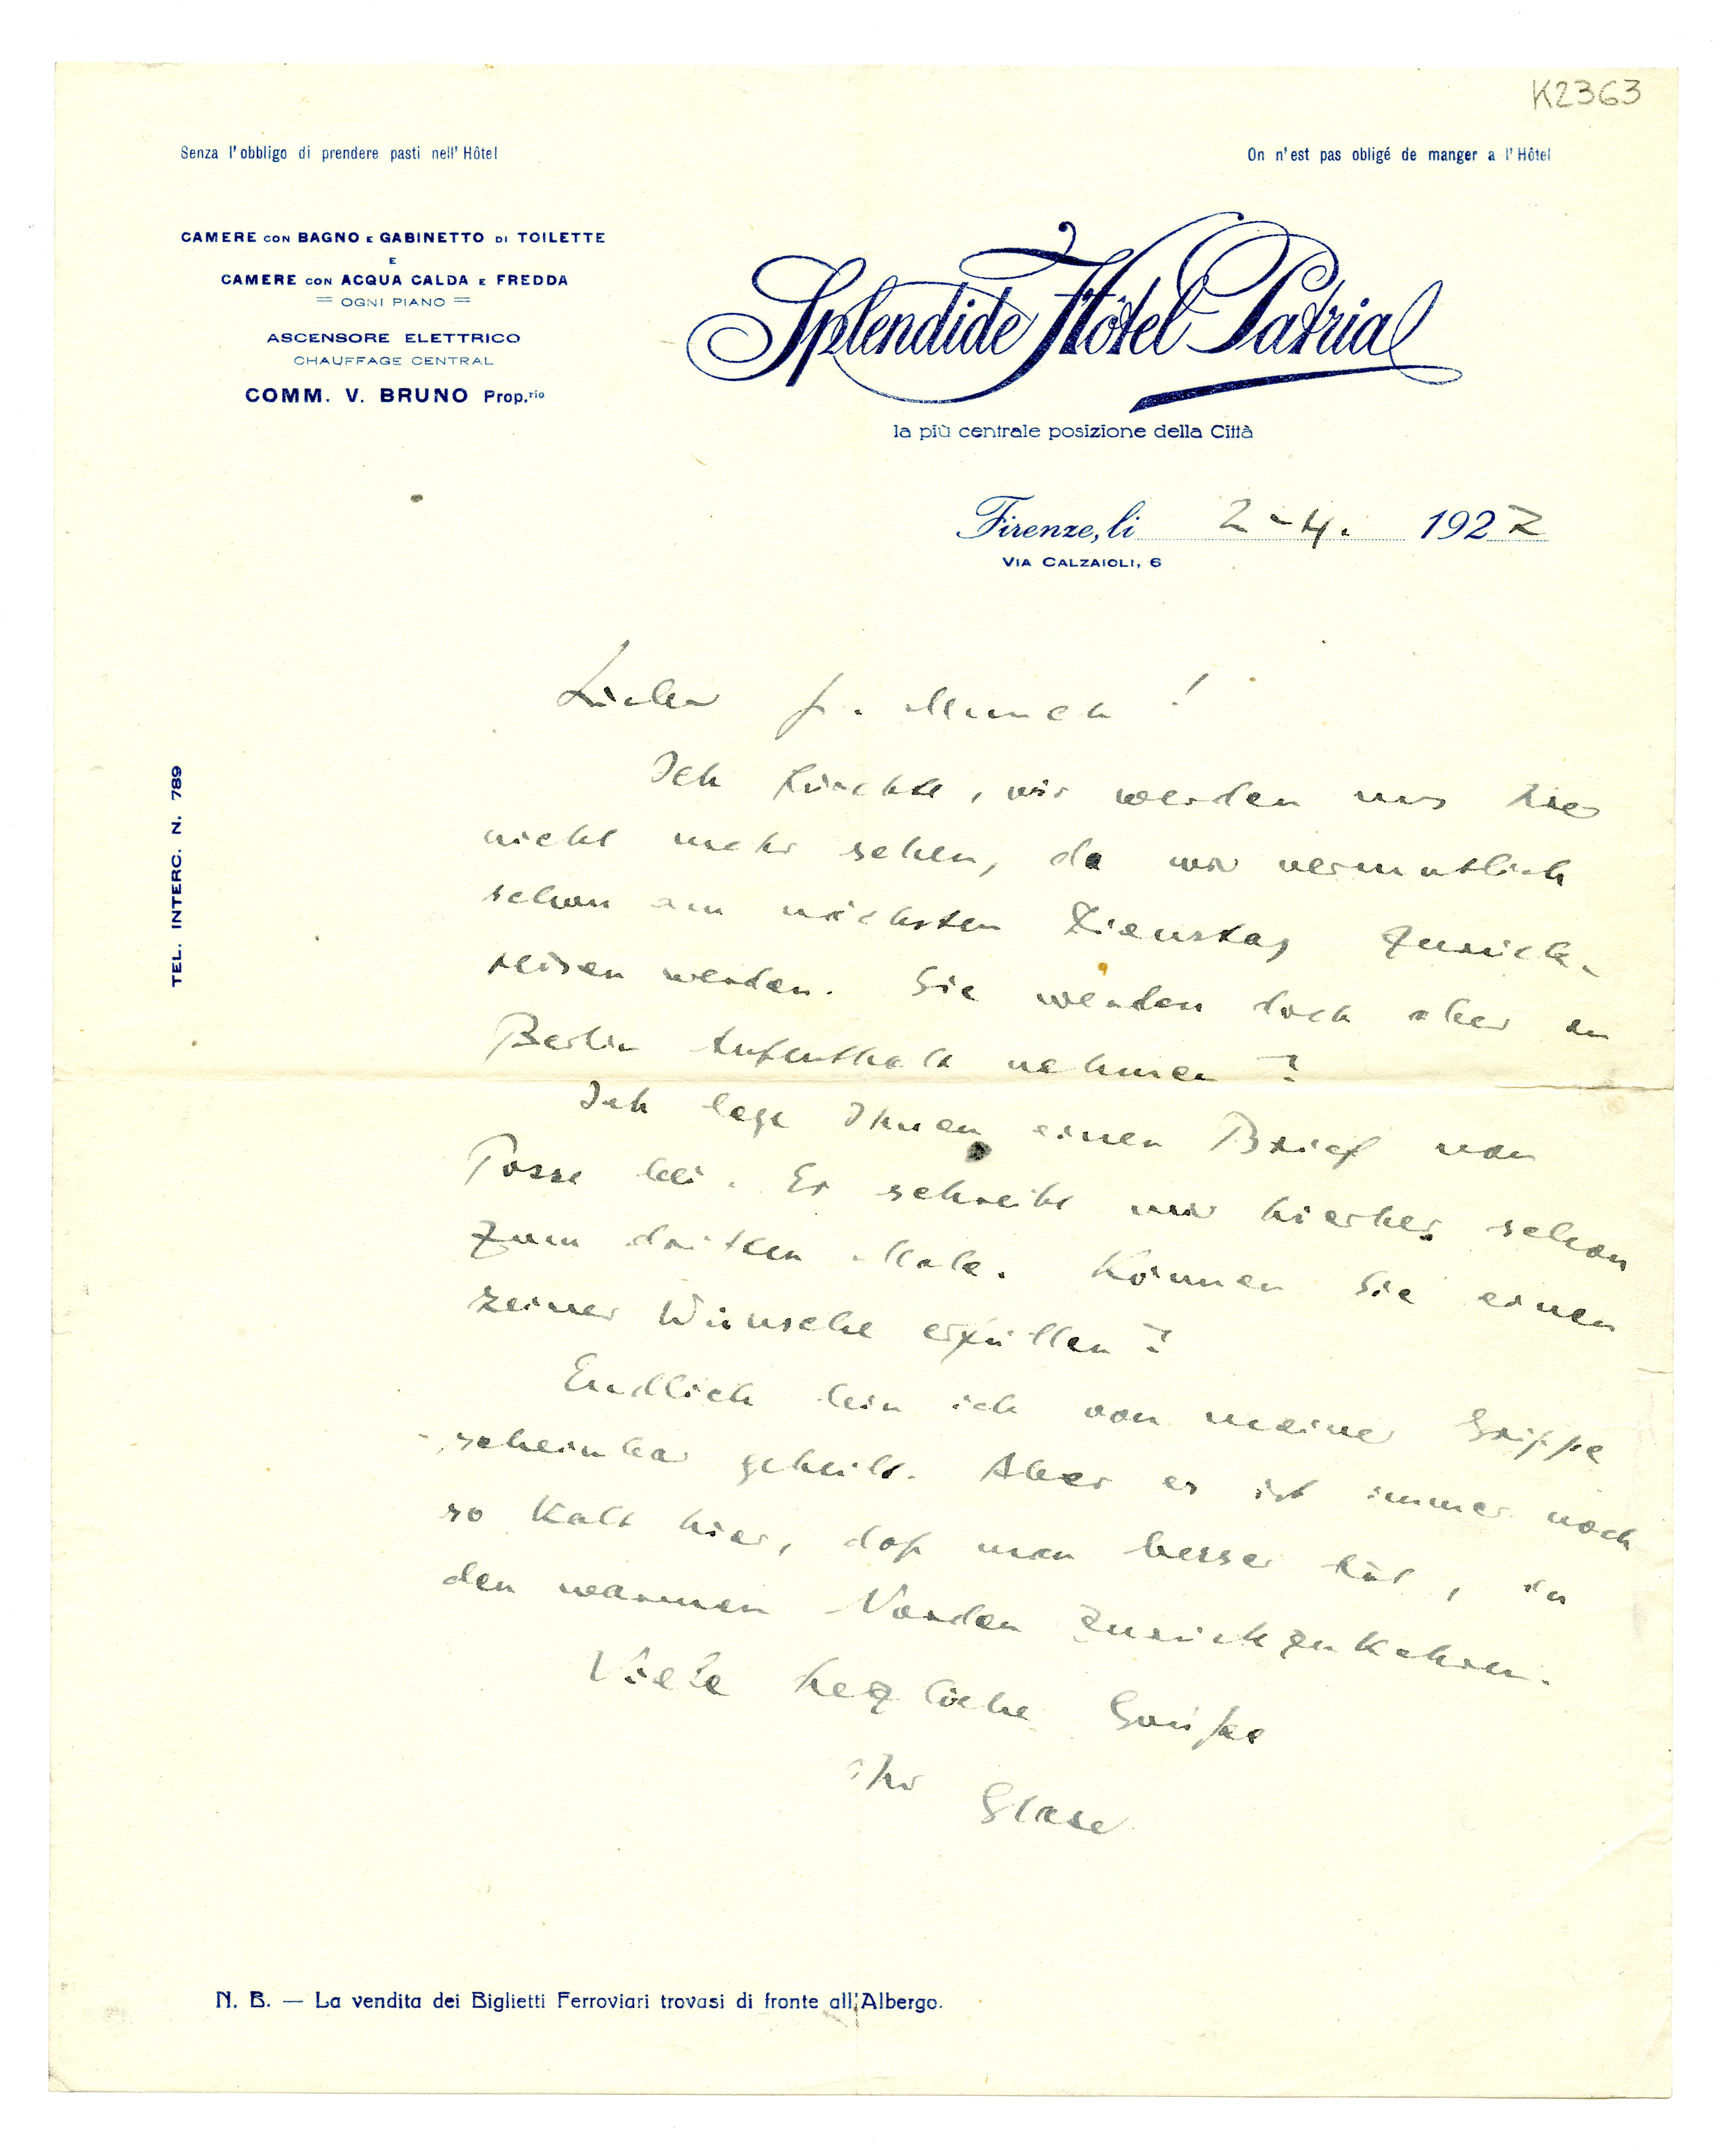 K2363
Senza l'obbligo di prendere pasti nell'Hôtel
On n'est pas obligé de manger a l'Hôtel
CAMERE CON BAGNO E GABINETTO DI TOILETTE
E
CAMERE CON ACQUA CALDA E FREDDA
OGNI PIANO
ASCENSORE ELETTRICO
CHAUFFAGE CENTRAL
COMM. V. BRUNO Prop.rio
Splendide Hôtel Patria
la più centrale posizione della Città
Firenze, li 2-4. 1927
VIA CALZAIOLI, 6
TEL. INTERC. N. 789
Lieber Munch!
Ich fürchte, wir werden uns hier
nicht mehr sehen, da wir vermutlich
schon am nächsten Dienstag zurück-
reisen werden. Sie werden doch aber in
Berlin Aufenthalt nehmen?
Ich lege Ihnen einen Brief von
Posse bei. Er schreibt mir hierher schon
zum dritten Male. Können Sie einen
seiner Wünsche erfüllen?
Endlich bin ich von meiner Grippe
scheinbar geheilt. Aber es ist immer noch
so kalt hier, daß man besser tut, in
den warmen Norden zurückzukehren.
Viele herzliche Grüße
Ihr Glaser
N. B. — La vendita dei Biglietti Ferroviari trovasi di fronte all'Albergo.